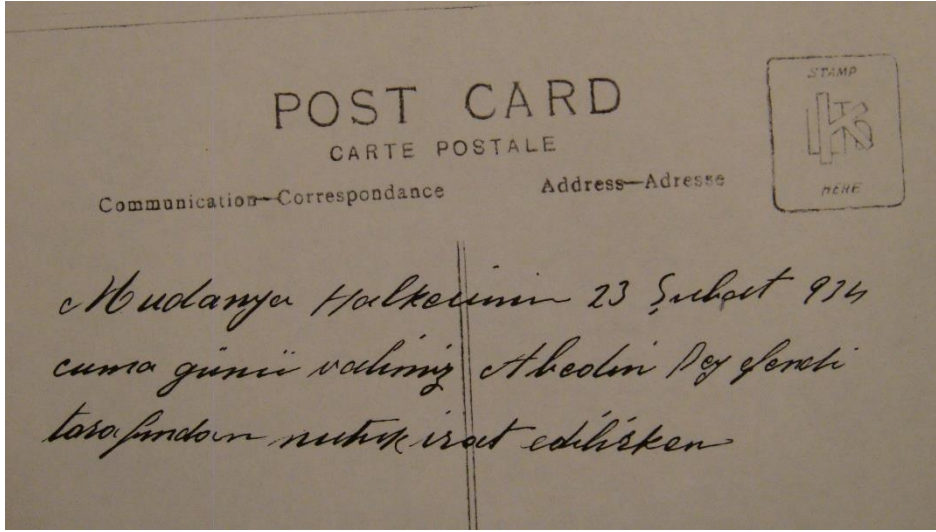 POST CARD
CARTE POSTALE
Communication—Correspondance
Address—Adresse
STAMP
HERE
Mudanya Halkevinin 23 Şubat 934
cuma günü valimiz Abedin Bey efendi
tarafından nutuk irat edilirken